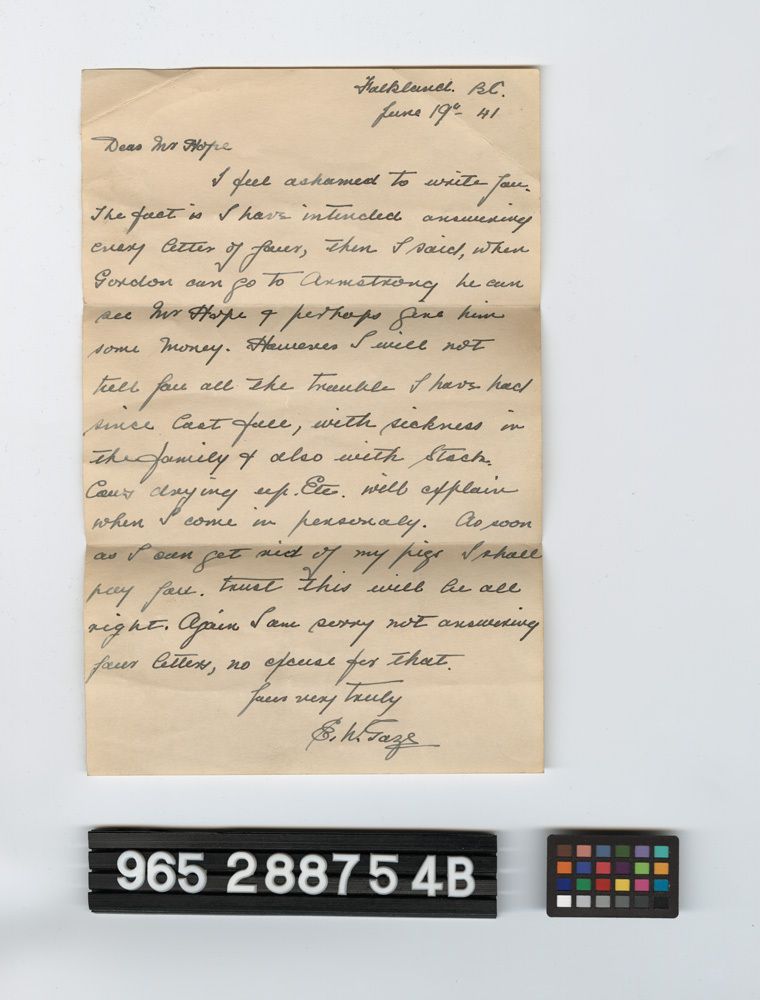 Falkland. B.C.
June 19th - 41
Dear Mr Hope
I feel ashamed to write you.
The fact is I have intended answering
every letter of yours, then I said, when
Gordon can go to Armstrong he can
see Mr Hope & perhaps give him
some money. However I will not
tell you all the trouble I have had
since last fall, with sickness in
the family & also with stock.
Cows drying up. Etc. will explain
when I come in personaly. As soon
as I can get rid of my pigs I shall
pay you. trust this will be all
right. Again I am sorry not answering
your letters, no excuse for that.
Yours very truly
E. W. Taze
965 288754B